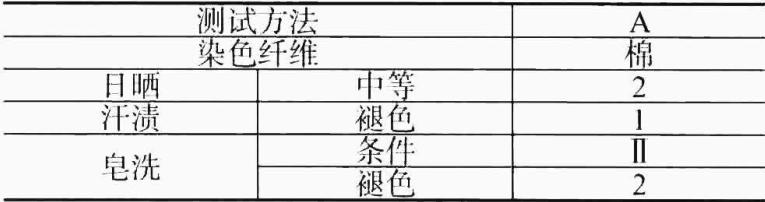 测试方法 A
染色纤维 棉
日晒 中等 2
汗渍 褪色 1
皂洗 条件 Ⅱ
褪色 2